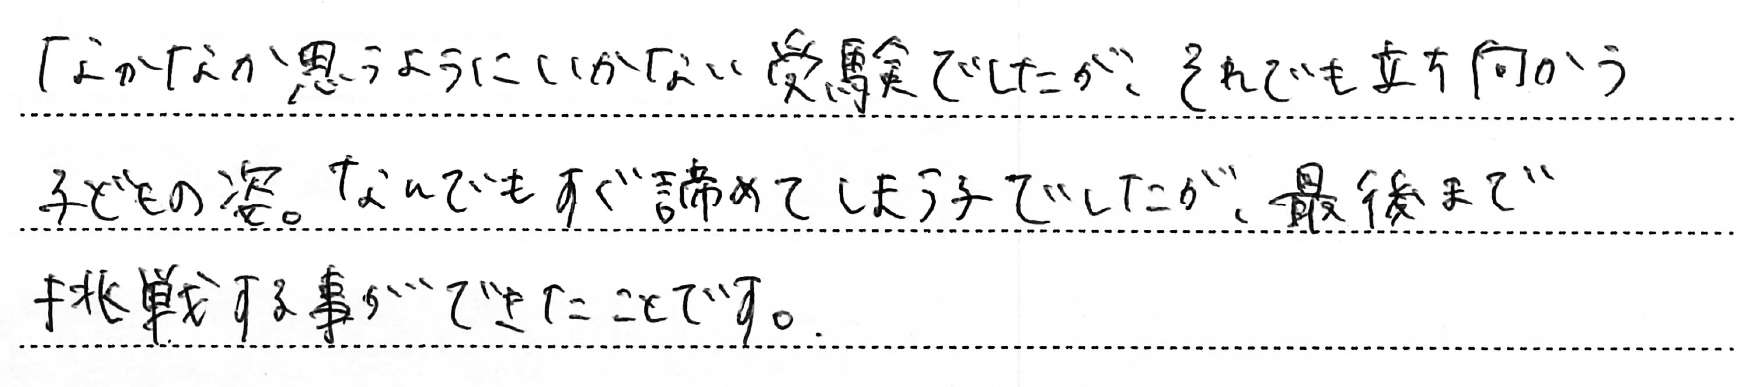 なかなか思うようにいかない受験でしたが、それでも立ち向かう
子どもの姿。なんでもすぐ諦めてしまう子でしたが、最後まで
挑戦する事ができたことです。